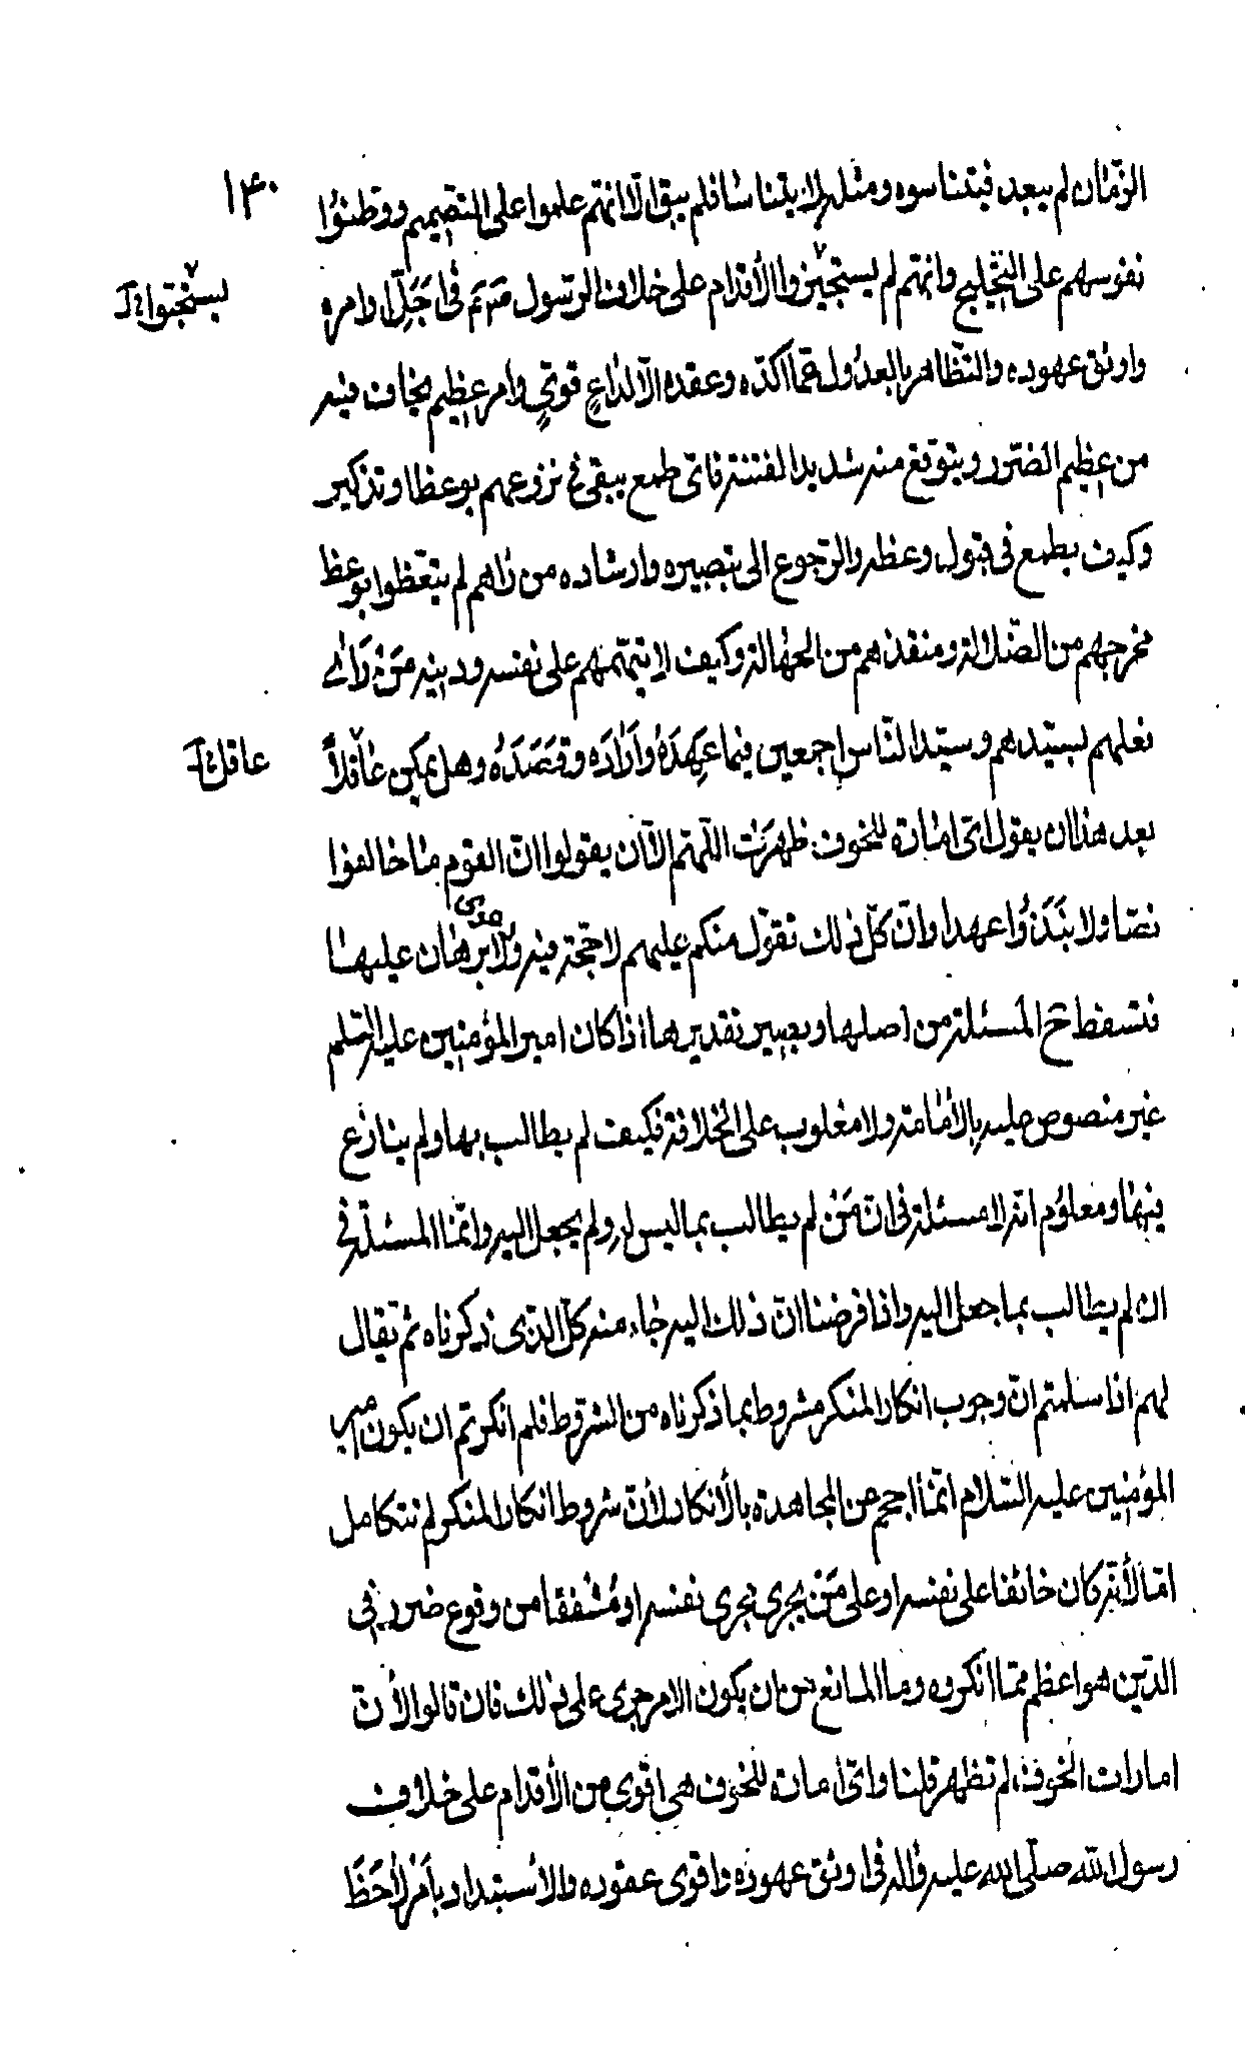 ١٣٠
الزّمان لم يبعد فيتناسوه ومثله لا يتناسا فلم يبق الّا انهم علموا على التصميم ووطنوا
نفوسهم على التجليح وانهم لم يستجيزوا الأقدام على خلاف الرّسول في اجلّ اوامره
واوثق عهوده والتّظاهر بالعدول عمّا اكدّه وعقده الّا لداعٍ قويّ وامر عظيم يخاف فيه
من عظيم الضّرر ويتوقع منه شديد الفتنة فاىّ طمع يبقى فى نزوعهم بوعظ او تذكير
وكيف يطمع في قبول وعظه والرّجوع الى تبصيره وارشاده من راهم لم يتعظوا بوعظ
مخرجهم من الضّلالة ومنقذهم من الجهالة وكيف لا يتهمهم على نفسه ودينه من راى
فعلهم بسيّدهم وسيّد النّاس اجمعين فيما عهده واراده وقصده وهل يمكن عاقلاً
بعد هذا ان يقول اىّ امارة للخوف ظهرت اللّهم الّا ان يقولوا انّ القوم ما خالفوا
نصّا ولا نبذوا عهدا وانّ كلّ ذلك تقوّل منكم عليهم لا حجّة فيه ولا برهان عليها
فتسقط ح المسئلة من اصلها ويصير تقديرها اذا كان امير المؤمنين عليه السّلم
غير منصوص عليه بالأمامة ولا مغلوب على الخلافة فكيف لم يطالب بها ولم ينازع
فيها ومعلوم انّه لا مسئلة فى انّ من لم يطالب بما ليس له ولم يجعل اليه وانّما المسئلة في
ان لم يطالب بما جعل اليه واذا فرضنا انّ ذلك اليه جاء منه كلّ الذى ذكرناه ثم يقال
لهم اذا سلمتم انّ وجوب انكار المنكر مشروط بما ذكرناه من الشروط فلم انكرتم ان يكون امير
المؤمنين عليه السّلام انّما احجم عن المجاهدة بالأنكار لأنّ شروط انكار المنكر لم تتكامل
امّا لأنّه كان خائفا على نفسه او على من يجرى مجرى نفسه او مشفقا من وقوع ضرر في
الدّين هو اعظم ممّا انكروه وما المانع من ان يكون الامر جرى على ذلك فان قالوا لأنّ
امارات الخوف لم تظهر قلنا واىّ امارة للخوف هي اقوى من الأقدام على خلاف
رسول الله صلّى الله عليه واله في اوثق عهوده واقوى عقوده والاستبداد بامر لا حظّ
يستجيزوا
عاقل